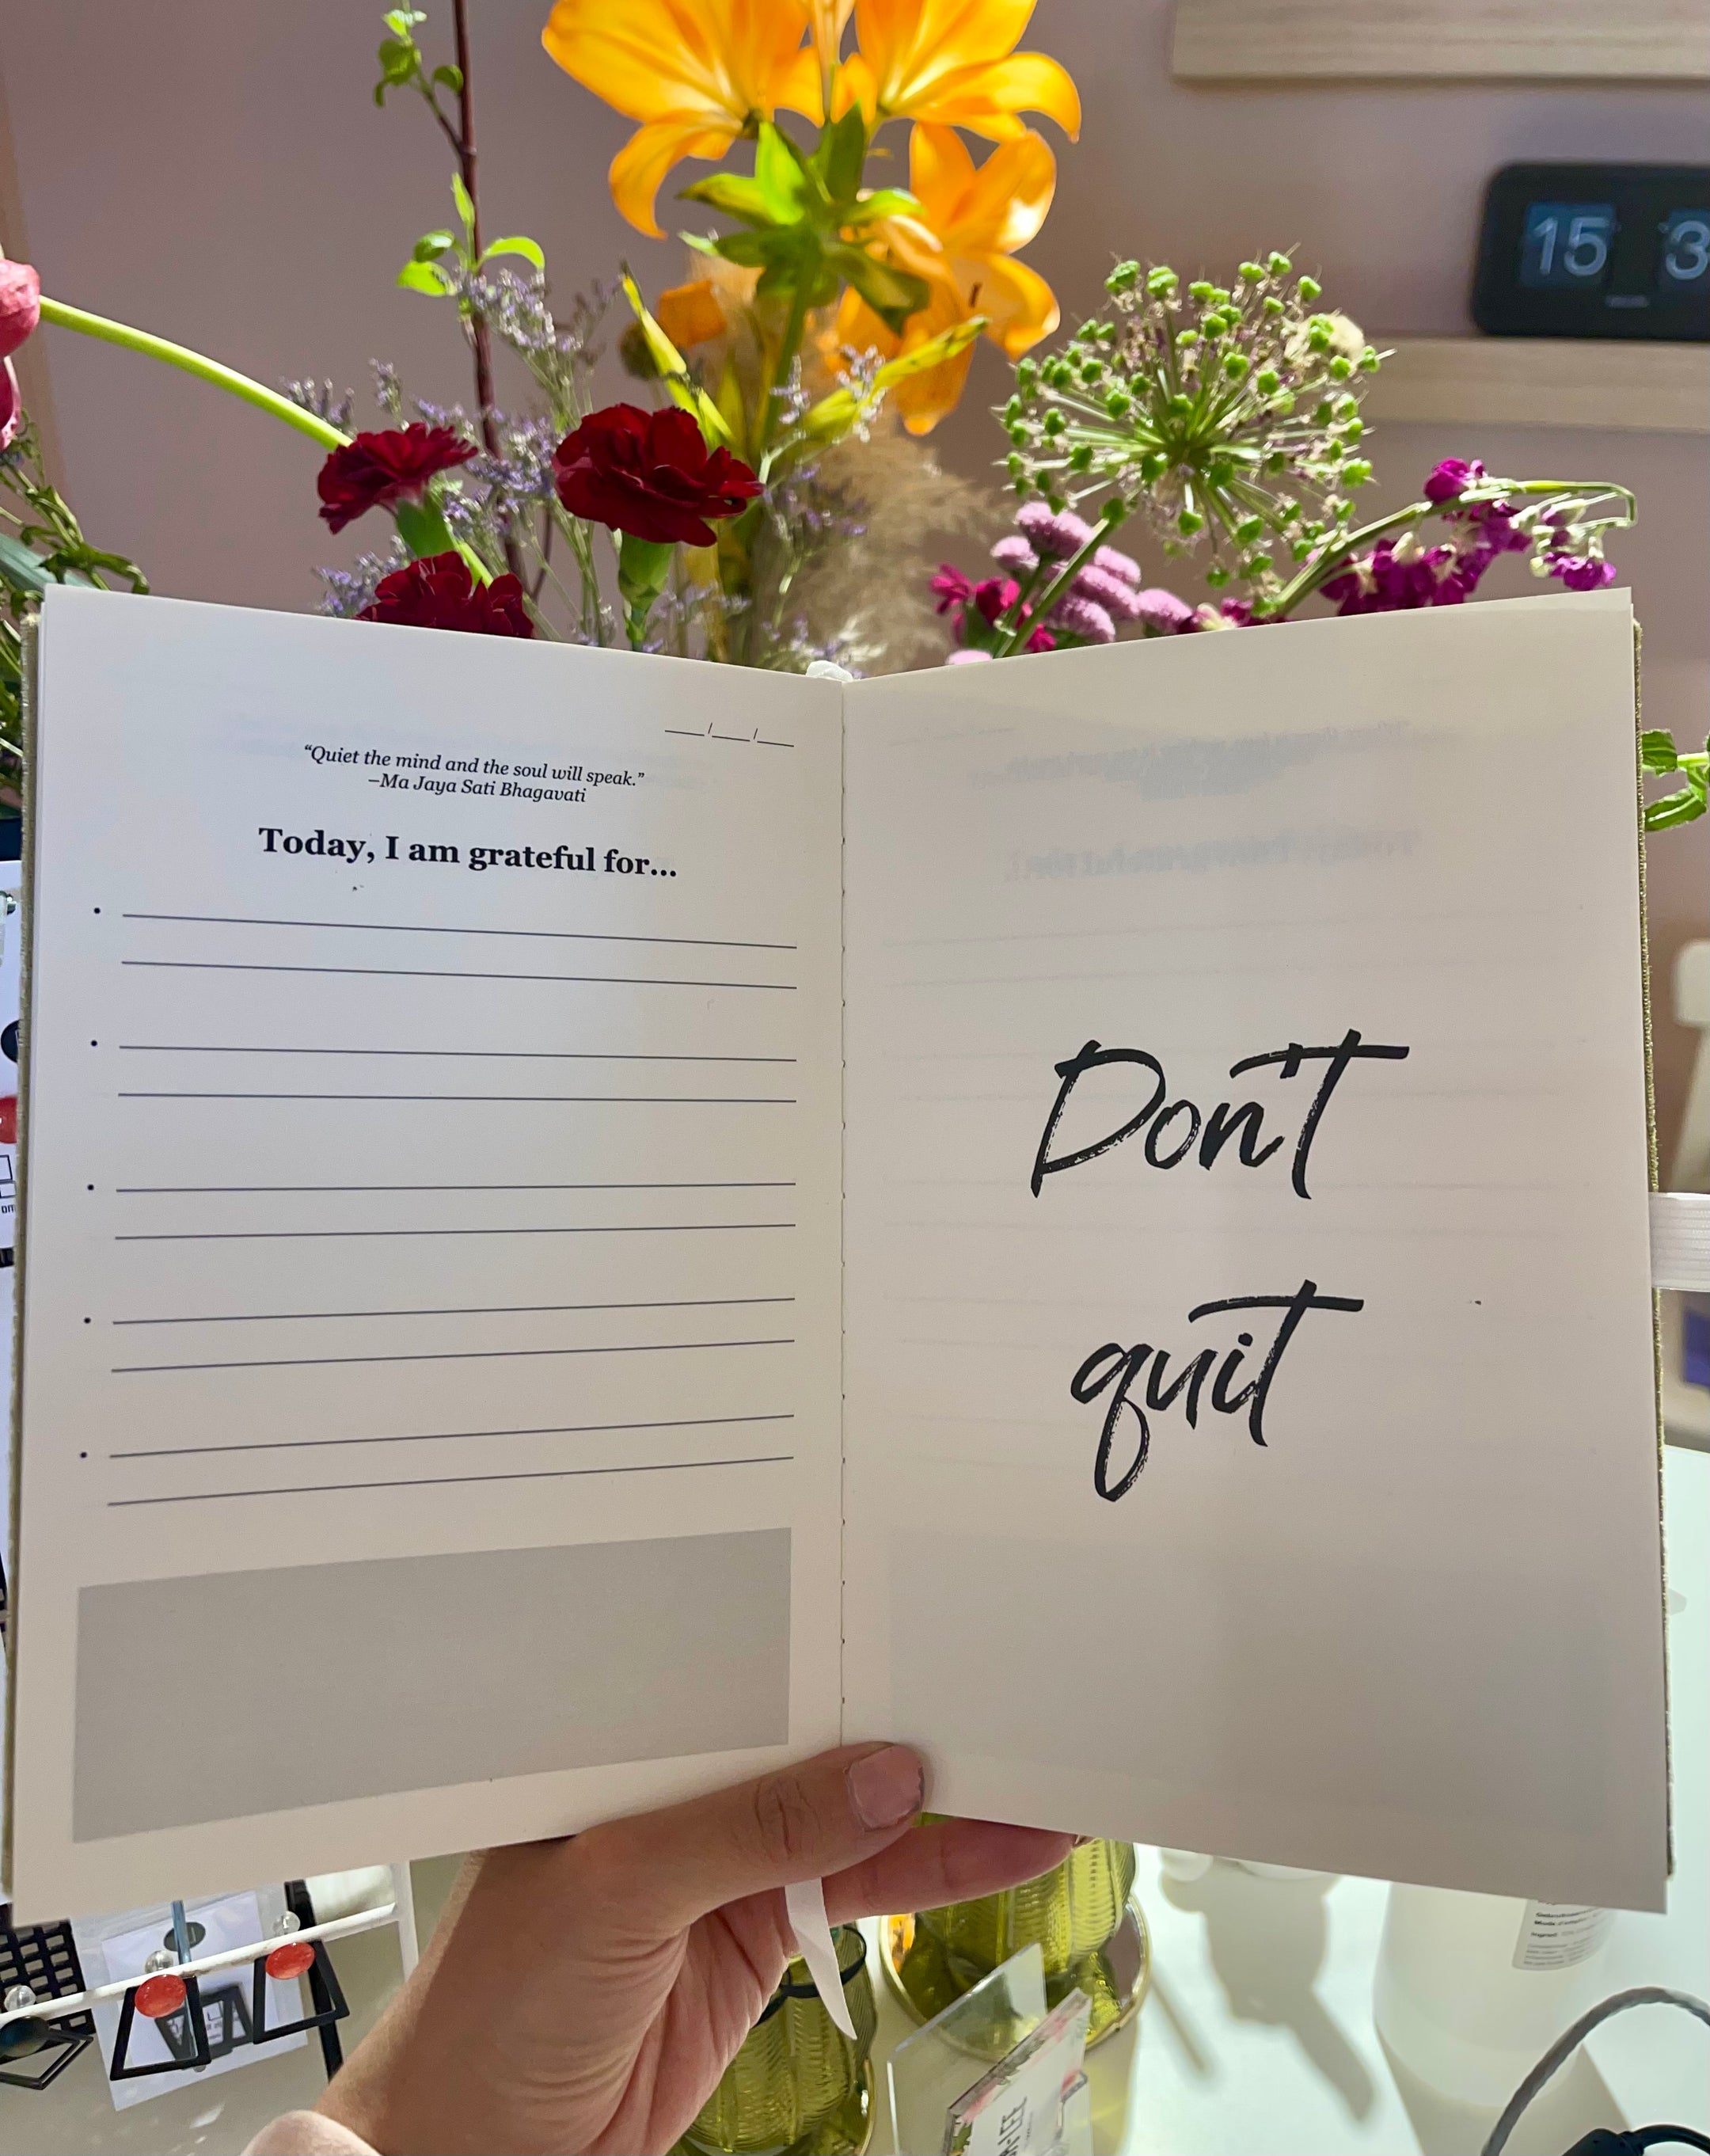 15 3
___/___/___
“Quiet the mind and the soul will speak.”
–Ma Jaya Sati Bhagavati
Today, I am grateful for...
Don't
quit